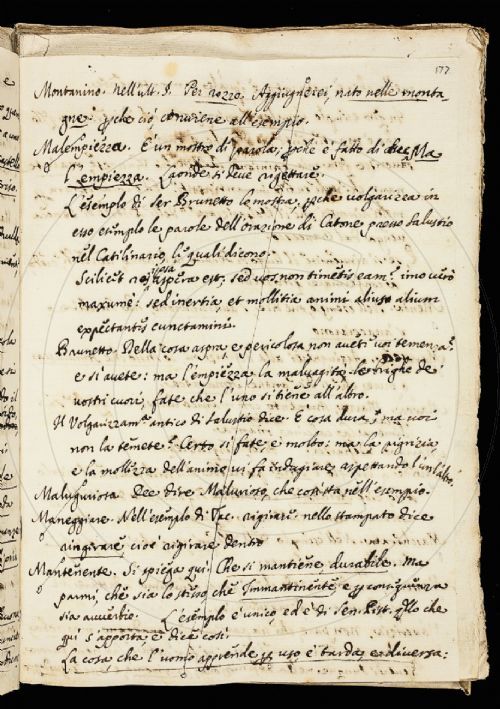 577
Montanino. Nell'ult. §. Per rozzo. Aggiugnerei, nato nelle monta
gne, pche ciò conviene all'esempio.
Malempiezza. È un mostro di parola, pche è fatto di due, Ma
l'empiezza. Laonde si deve rigettare.
L'esempio di Ser Brunetto lo mostra, pche volgarizza in
esso esempio le parole dell'orazione di Catone presso Salustio
nel Catilinario, le quali dicono.
Scilicet res ipsa aspera est, sed vos non timetis eam? imo vero
maxume: sed inertia, et mollitia animi alius alium
expectantes cunctamini.
Brunetto. Della cosa aspra, e pericolosa non avete voi temenza?
e si avete: ma l'empiezza, la malvagità, le brighe de
vostri cuori fate che l'uno si tiene all'altro.
Il Volgarizzam.o antico di Salustio dice. È cosa dura, ma voi
non la temete? Certo si fate, e molto: ma la pigrizia
e la mollezza dell'animo vi fa indugiare aspettando l'un l'altro.
Malugurosa Dee dire Malurioso, che così sta nell'esempio.
Maneggiare. Nell'esempio di rigirare nello stampato dice
ringirare, cioè rigirare dentro
Mantenente. Si spiega qui Che si mantiene, durabile. Ma
parmi, che sia lo stesso che Immantinente, e p conseguenza
sia avverbio. L'esempio è unico, ed è di Sen. Pist. qllo che
qui s'apporta, e dice così.
La cosa, che l'uomo apprende p uso, è tarda, e diversa: